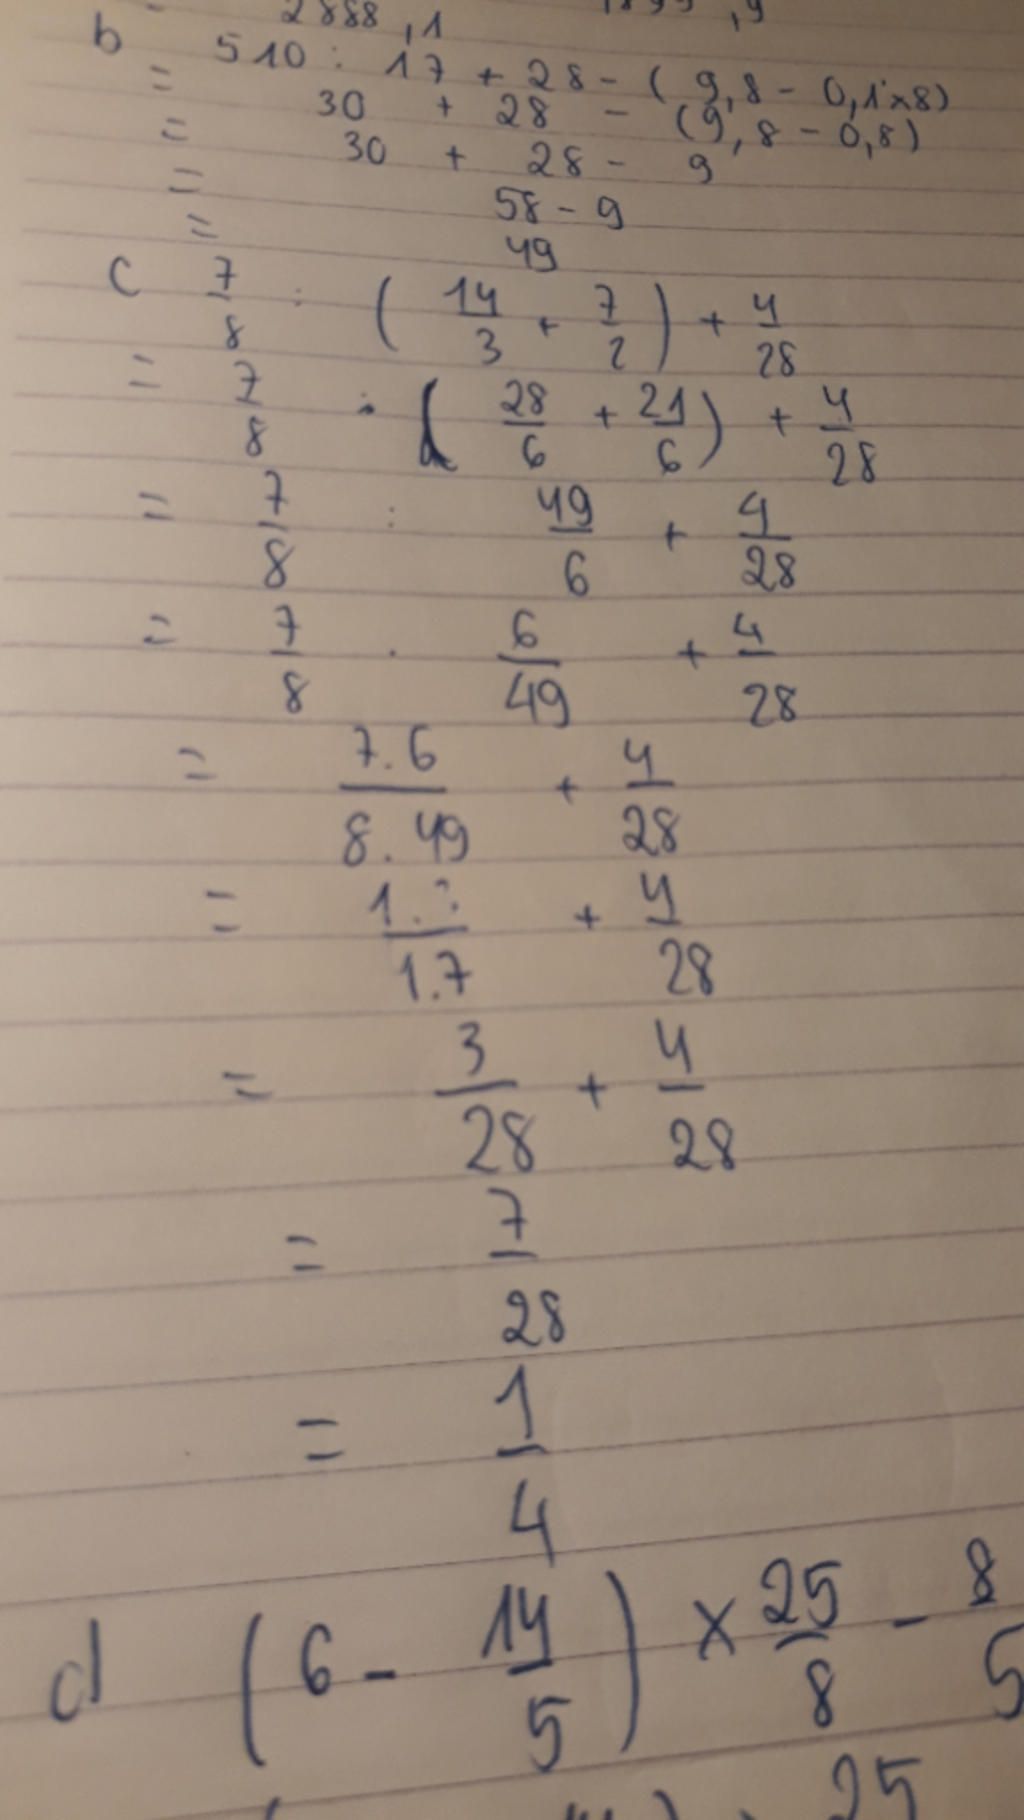 2888,1
b 510 : 17 + 28 - ( 9,8 - 0,1×8)
= 30 + 28 - (9,8 - 0,8)
= 30 + 28 - 9
= 58 - 9
= 49
c 7/8 : (14/3 + 7/2) + 4/28
= 7/8 : (28/6 + 21/6) + 4/28
= 7/8 : 49/6 + 4/28
= 7/8 . 6/49 + 4/28
= 7.6/8.49 + 4/28
= 1./1.7 + 4/28
= 3/28 + 4/28
= 7/28
= 1/4
d (6 - 14/5) × 25/8 - 8/5
25